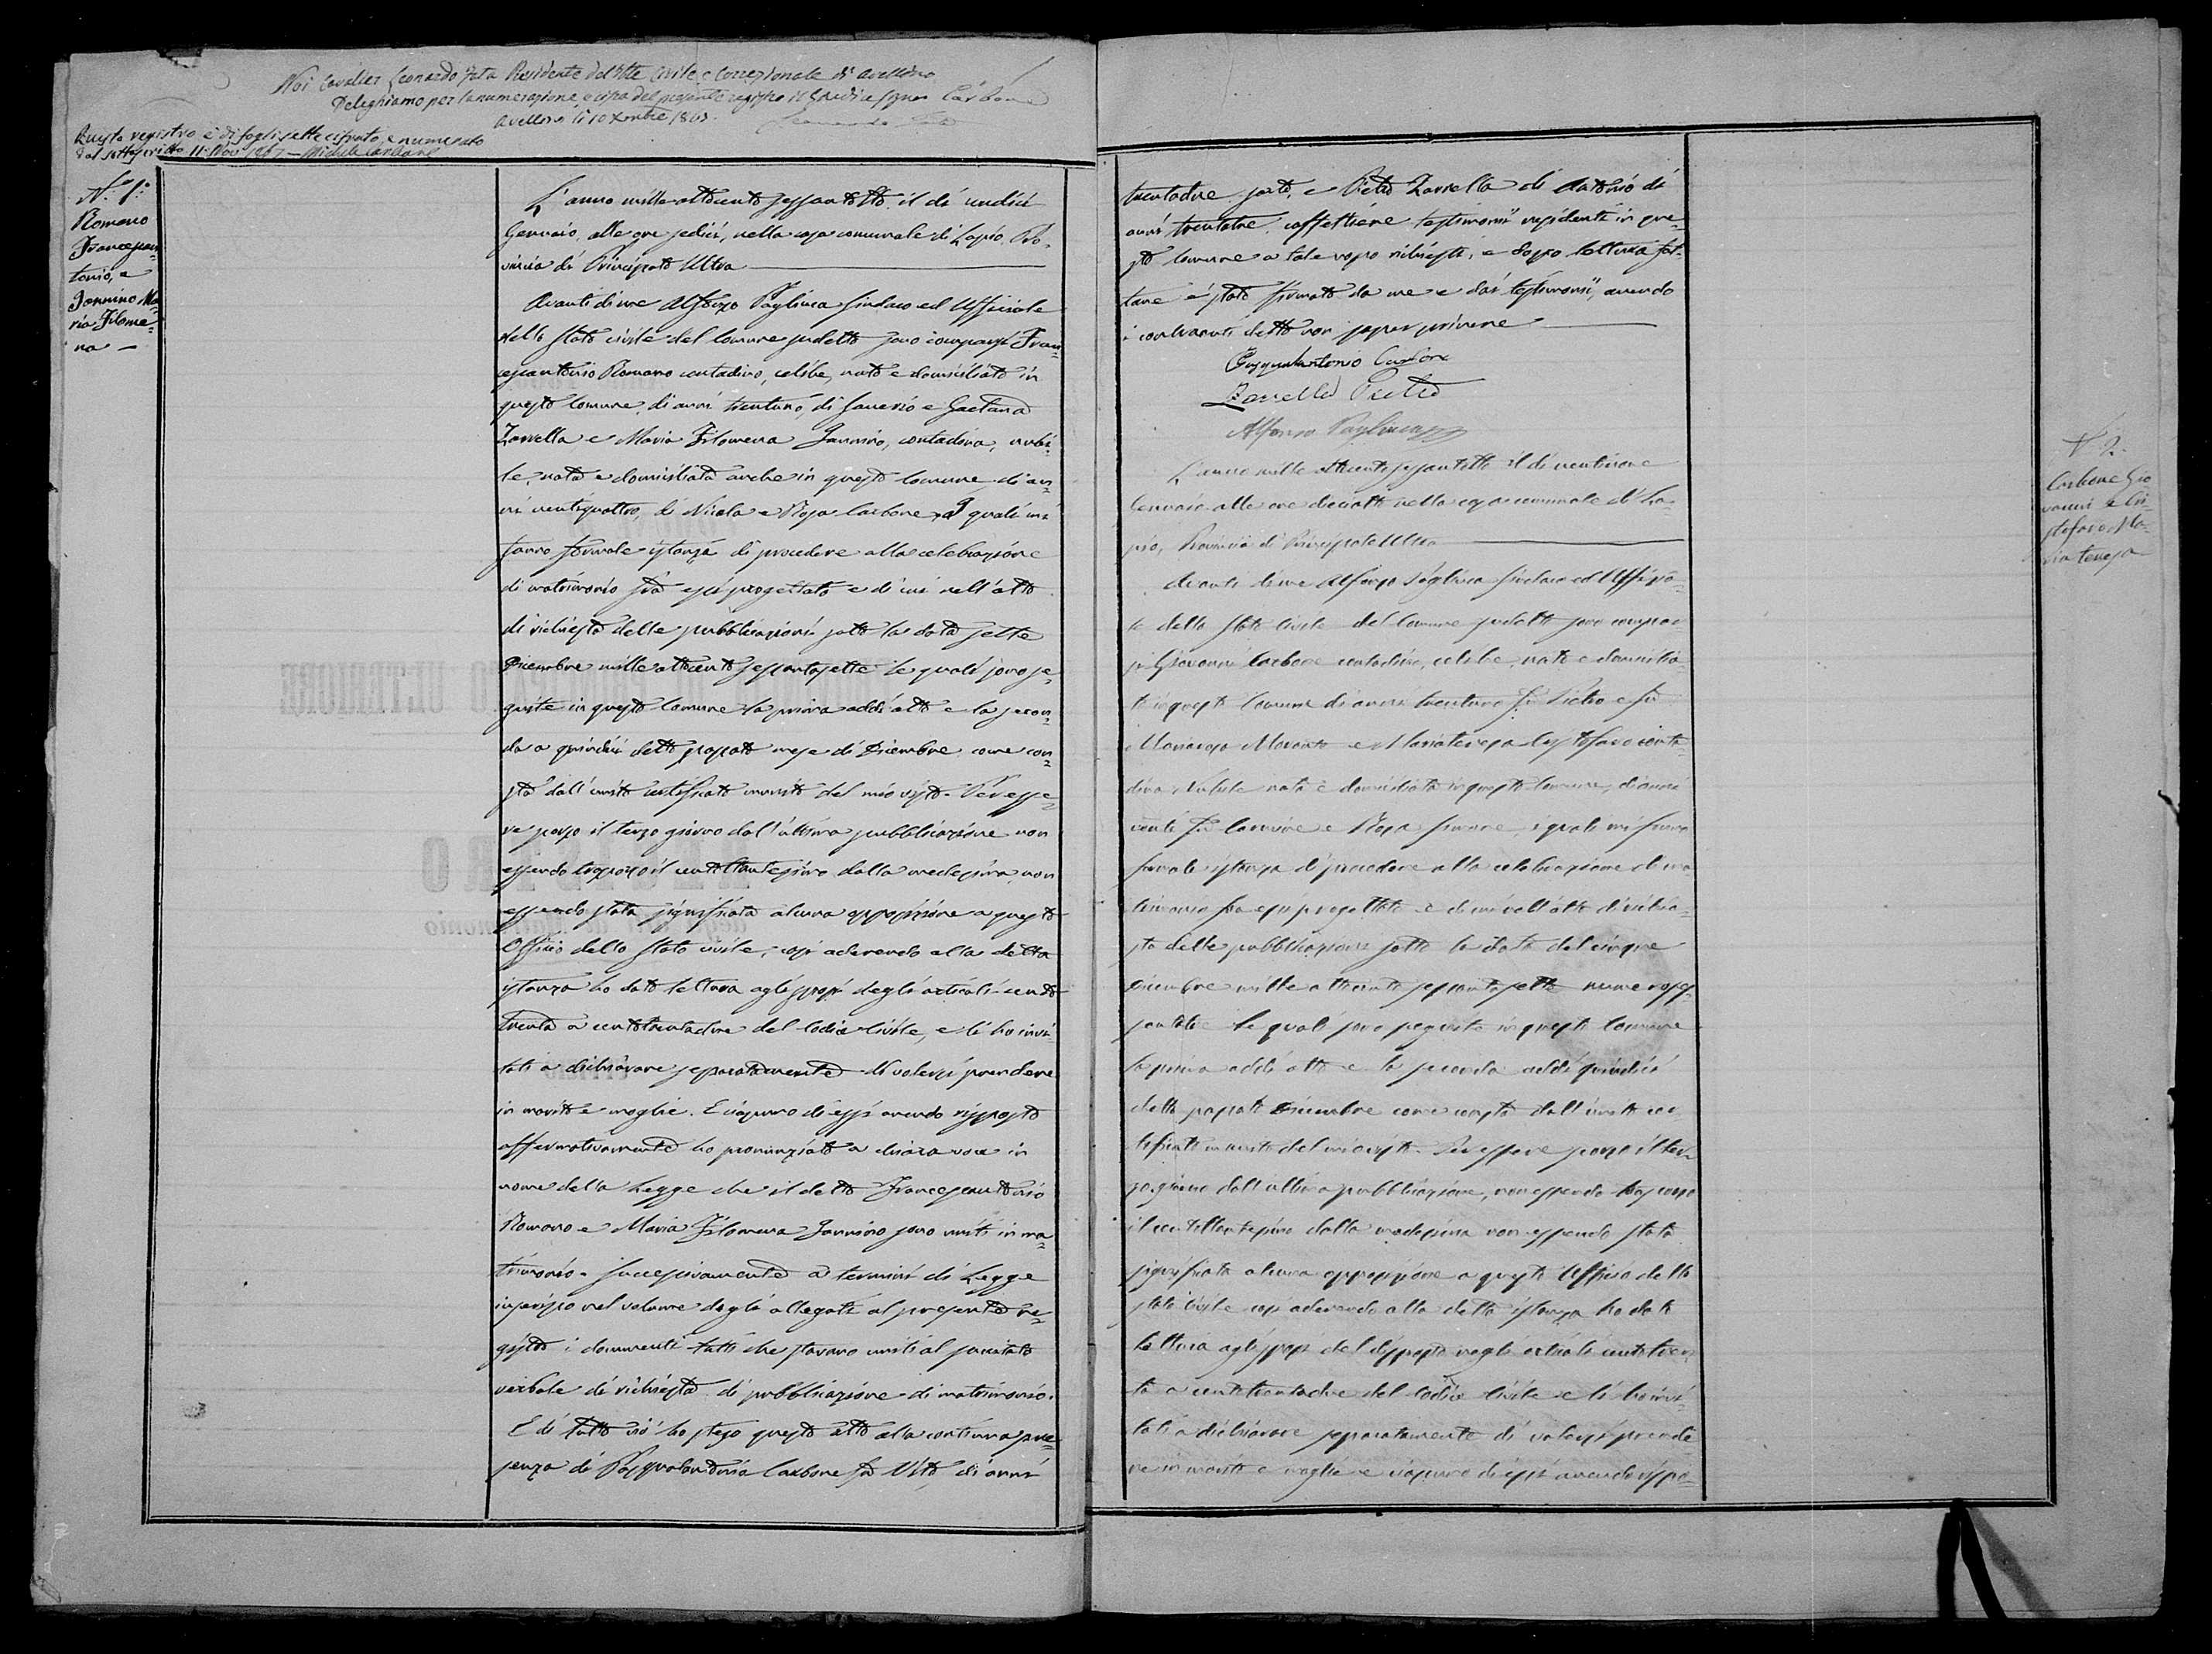 Noi Cavalier Leonardo Presidente del Civile e Correzionale di Avellino
Deleghiamo per la numerazione, e cifra del presente registro il Giudice Signor Carbone
Avellino li 10 1867.
Questo registro è di fogli sette cifrato, e numerato
dal sottoscritto 11 1867 — Michele Carbone
N.º 1º
Romano
Francescan=
tonio, e
Jannino Ma=
ria Filome=
na —
L'anno mille ottocento sessantotto il dì undici
Gennaio, alle ore sedici, nella casa comunale di Lapio Pro-
vincia di Principato Ultra
Avanti di me Alfonzo Pagliuca Sindaco ed Uffiziale
dello Stato civile del Comune sudetto sono comparsi Fran=
cescantonio Romano contadino, celibe, nato e domiciliato in
questo Comune, di anni trentuno, di Saverio e Gaetana
Zarrella e Maria Filomena Jannino, contadina, nubi-
le, nata e domiciliata anche in questo Comune, di an=
ni ventiquattro, di Nicola e Rosa Carbone, I quali mi
fanno formale istanza di procedere alla celebrazione
di matrimonio fra essi progettato e di cui nell'atto
di richiesta delle pubblicazioni sotto la data sette
Dicembre mille ottocento sessantasette le quali sono se=
guite in questo Comune la prima addì otto e la secon=
da a quindici detto passato mese di Dicembre come con=
sta dall'unito certificato munito del mio visto. Per esse=
re scorso il terzo giorno dall'ultima pubblicazione non
essendo trascorso il centottantesimo dalla medesima, non
essendo stata significata alcuna opposizione a questo
Officio dello Stato civile, così aderendo alla detta
istanza ho dato lettura agli sposi degli articoli cento
trenta a centotrentadue del Codice Civile, e li ho invi-
tati a dichiarare separatamente di volersi prendere
in marito e moglie. E ciascuno di essi avendo risposto
affermativamente ho pronunziato a chiara voce in
nome della Legge che il detto Francescantonio
Romano e Maria Filomena Jannino sono uniti in ma=
trimonio. Successivamente a termini di Legge
inserisco nel volume degli allegati al presente re=
gistro i documenti tutti che stavano uniti al succitato
verbale di richiesta di pubblicazione di matrimonio.
E di tutto ciò ho steso questo atto alla continua pre=
senza di Pasqualantonio Carbone fu Vito, di anni
trentadue sarto, e Pietro Zarrella di Antonio di
anni trentatre caffettiere testimonii residenti in que=
sto Comune a tale uopo richiesti, e dopo lettura fat-
tane è stato firmato da me e dai testimonii, avendo
i contraenti detto non saper scrivere
Pasqualantonio Carbone
Zarrella Pietro
Alfonso Pagliuca
N.º 2.
Carbone Gio
vanni e Cri-
stofaro Ma-
ria teresa
L'anno mille ottocento sessantotto il dì ventinove
Gennaio alle ore diciotto nella casa comunale di La-
pio, Provincia di Principato Ultra
Avanti di me Alfonzo Pagliuca Sindaco ed Uffizia-
le dello Stato Civile del Comune sudetto sono compar
si Giovanni Carbone contadino, celibe, nato e domicilia-
to in questo Comune di anni trentuno fu Pietro e fu
Mariarosa e Mariateresa Cristofaro conta-
dina, Nubile nata e domiciliata in questo Comune, di anni
venti fu Carmine e Rosa i quali mi fanno
formale istanza di procedere alla celebrazione di ma
trimonio fra essi progettato e di cui nell'atto di richie-
sta delle pubblicazioni sotto la data del cinque
Dicembre mille ottocento sessantasette numero
le quali sono seguite in questo Comune
la prima addì otto e la seconda addì quindici
detto passato Dicembre come consta dall'unito cer
tificato munito del mio visto. Per essere scorso il ter=
zo giorno dall'ultima pubblicazione, non essendo trascorso
il centottantesimo dalla medesima non essendo stata
significata alcuna opposizione a questo Uffizio dello
Stato Civile così aderendo alla detta istanza ho dato
lettura agli sposi del disposto negli articoli centotren=
ta a centotrentadue del Codice Civile e li ho invi-
tati a dichiarare separatamente di volersi prende
re in marito e moglie e ciascuno di essi avendo rispo-